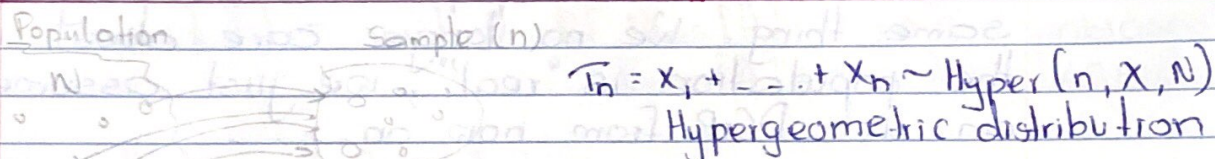 Population sample (n)
N Tn = X1 + - - . + Xn ~ Hyper (n, X, N)
Hypergeometric distribution